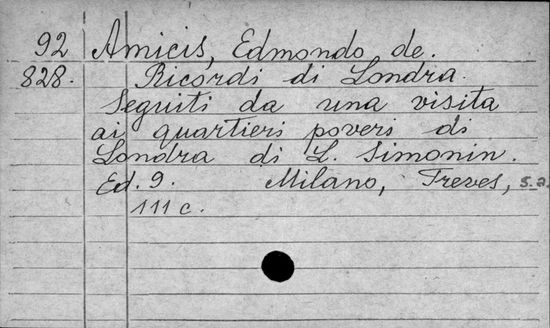 92 Amicis, Edmondo de.
828. Ricórdi di Londra.
Seguiti da una visita
ai quartieri poveri di
Londra di L. Simonin.
Ed. 9. Milano, Treves, s.a.
111 c.